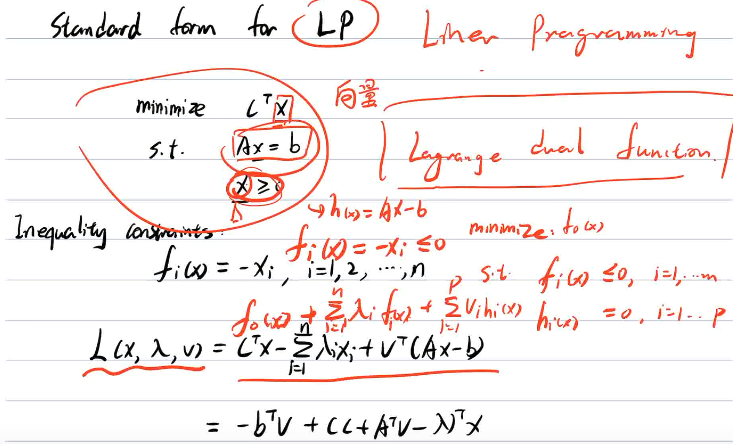 Standard form for LP Liner Programming
minimize cᵀx 向量
s.t. Ax = b Lagrange dual function.
x ≥ 0
↳ h(x) = Ax-b
Inequality constraints: fᵢ(x) = -xᵢ ≤ 0 minimize: f₀(x)
fᵢ(x) = -xᵢ, i=1,2, ⋯,n s.t. fᵢ(x) ≤0, i=1,...m
f₀(x) + Σᵢ₌₁ⁿ λᵢ fᵢ(x) + Σᵢ₌₁ᵖ νᵢhᵢ(x) hᵢ(x) =0, i=1... p
L(x, λ, ν) = cᵀx - Σᵢ₌₁ⁿ λᵢxᵢ + νᵀ(Ax-b)
= -bᵀν + (c+Aᵀν-λ)ᵀx